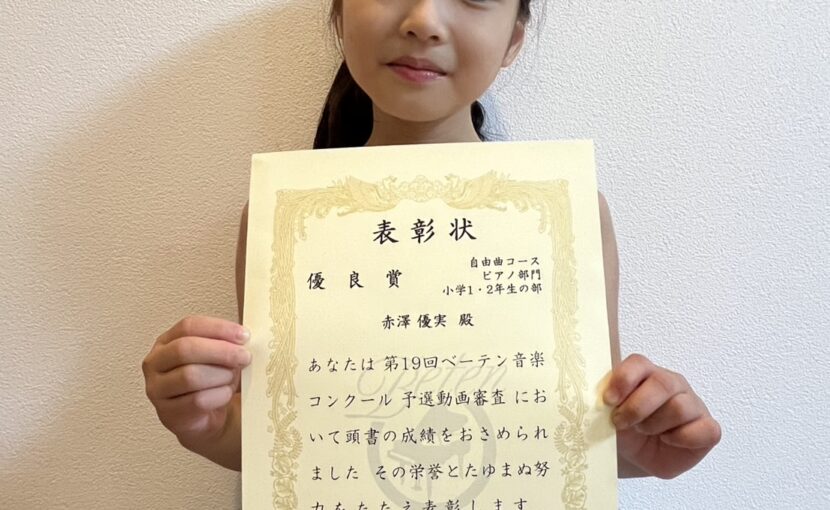 表彰状
自由曲コース
ピアノ部門
優良賞
小学1・2年生の部
赤澤 優実 殿
あなたは 第19回ベーテン音楽
コンクール 予選動画審査 にお
いて頭書の成績をおさめられ
ました その栄誉とたゆまぬ努
力をたたえ表彰します
Beten